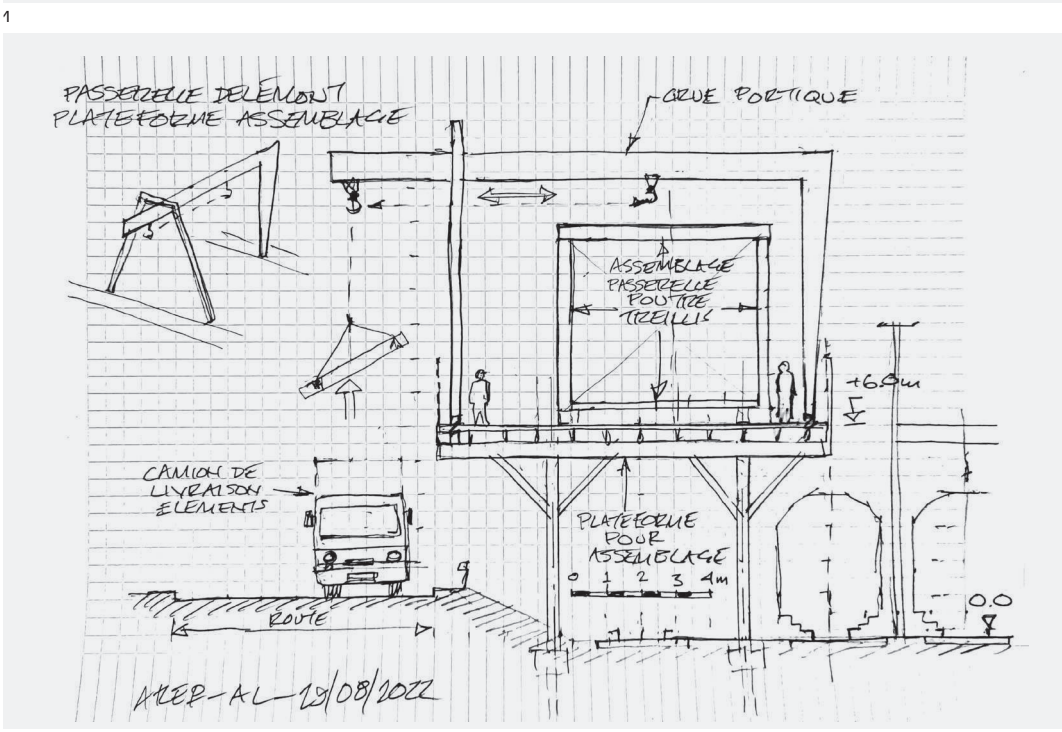 1
PASSERELLE DELÉMONT
PLATEFORME ASSEMBLAGE
GRUE PORTIQUE
ASSEMBLAGE
PASSERELLE
POUTRE
TREILLIS
+6.0m
CAMION DE
LIVRAISON
ELEMENTS
PLATEFORME
POUR
ASSEMBLAGE
0 1 2 3 4m
0.0
ROUTE
AREP-AL-29/08/2022